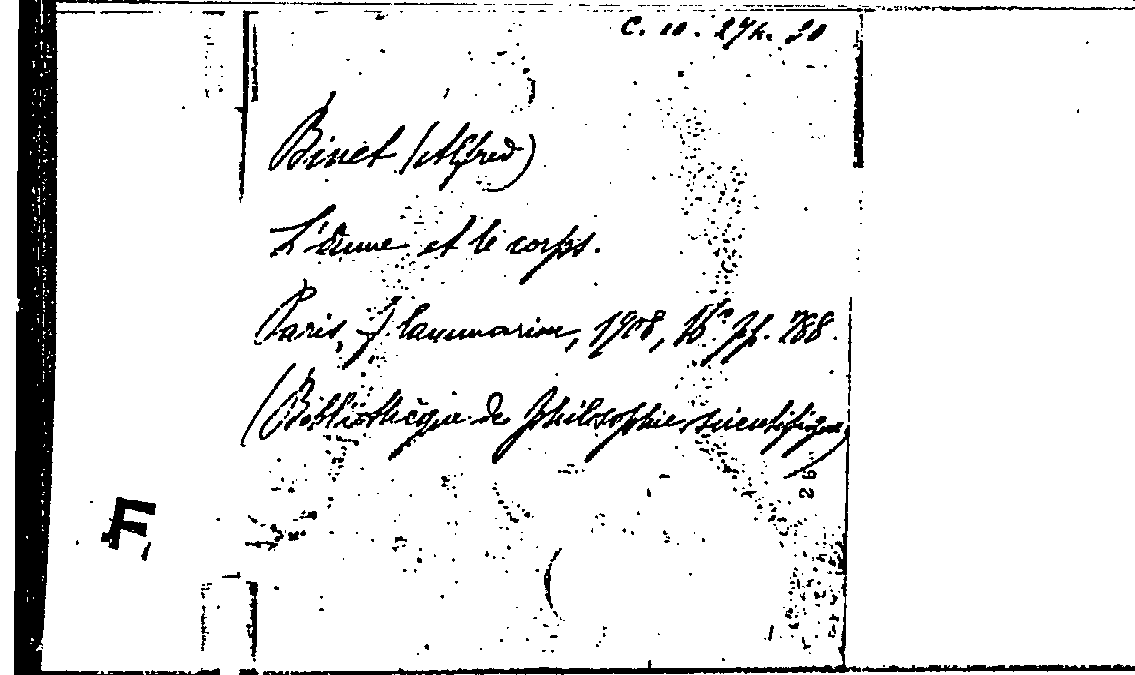 C. 10. 274. 20
Binet (Alfred)
L'âme et le corps.
Paris, Flammarion, 1908, 16° pp. 288.
(Bibliothèque de Philosophie scientifique)
26
F,